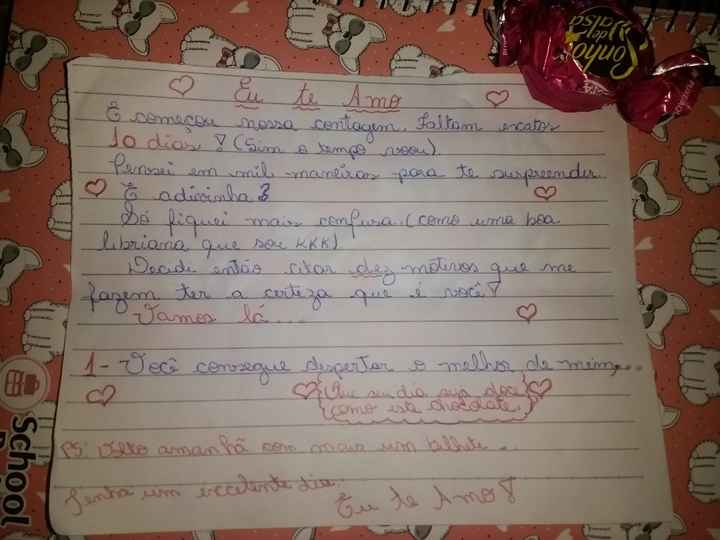 Sonho de Valsa
Eu te Amo
E começou nossa contagem. Faltam exatos
10 dias! (Sim o tempo voou).
Pensei em mil maneiras para te surpreender.
E adivinha?
Só fiquei mais confusa. (como uma boa
libriana que sou KKK)
Decidi então citar dez motivos que me
fazem ter a certeza que é você!
Vamos lá...
1- Você consegue despertar o melhor de mim...
Que seu dia seja doce
como este chocolate.
PS: Volto amanhã com mais um bilhete.
Tenha um excelente dia.
Eu te Amo!
School